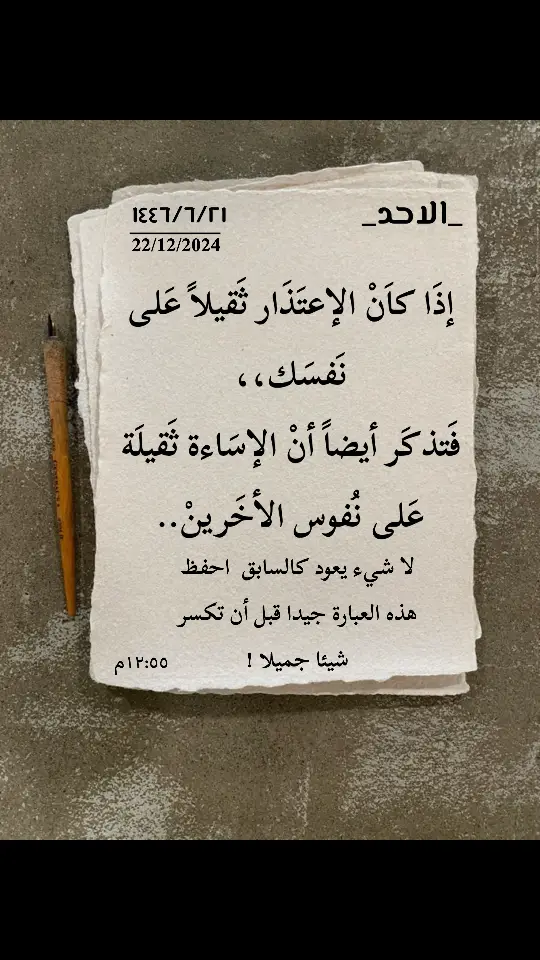 _الاحد_
١٤٤٦/٦/٢١
22/12/2024
إذَا كاَنْ الإعتَذَار ثَقيلاً عَلى
نَفسَك،،
فَتذكَر أيضاً أنْ الإسَاءة ثَقيلَة
عَلى نُفوس الأخَرينْ..
لا شيء يعود كالسابق احفظ
هذه العبارة جيدا قبل أن تكسر
شيئا جميلا !
١٢:٥٥م